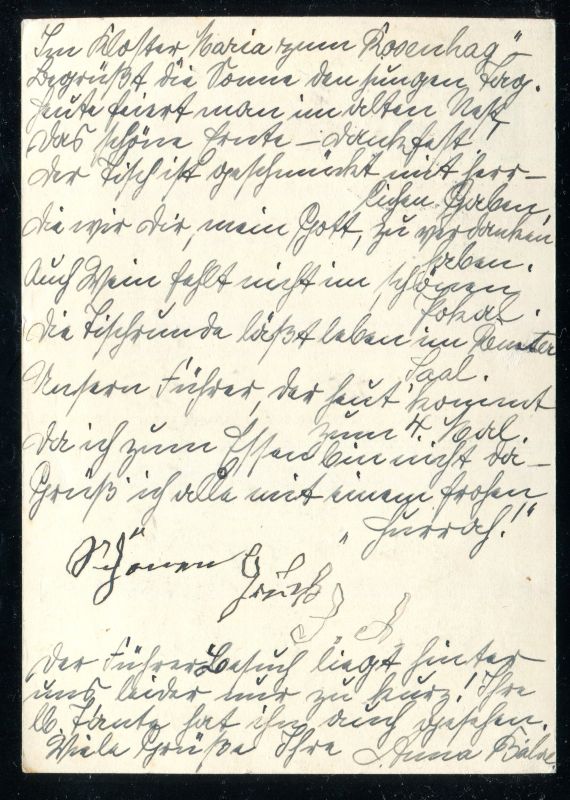 Im Kloster Maria zum Rosenhag"
Begrüßt die Sonne den jungen Tag.
Heute feiert man im alten Nest,
Das schöne Ernte – dankfest!
Der Tisch ist geschmückt mit herr–
lichen Gaben,
Die wir Dir, mein Gott, zu verdanken
haben.
Auch Wein fehlt nicht im schönen
Pokal.
Die Tischrunde läßt leben im
Saal.
Unsern Führer, der heut' kommt
zum 4. Mal.
Da ich zum Essen bin nicht da –
Grüß' ich alle mit einem frohen
„Hurrah!"
Schönen
Gruß
Der Führer Besuch liegt hinter
uns leider nur zu kurz! Ihre
lb. Tante hat ihn auch gesehen.
Viele Grüße Ihre Anna